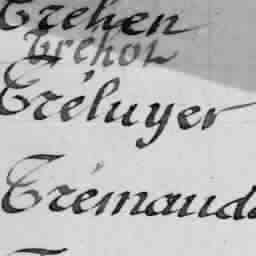 Trehen
Trehou
Tréluyer
Trémaud